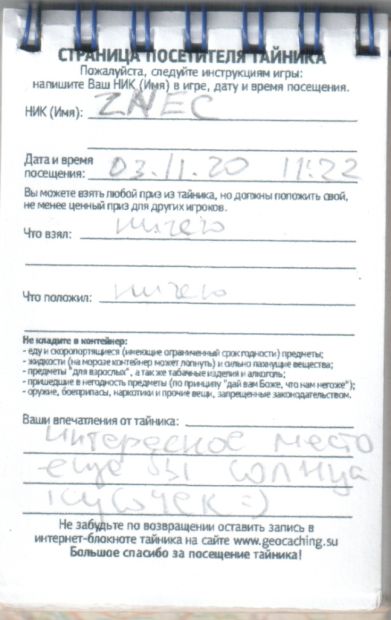 СТРАНИЦА ПОСЕТИТЕЛЯ ТАЙНИКА
Пожалуйста, следуйте инструкциям игры:
напишите Ваш НИК (Имя) в игре, дату и время посещения.
НИК (Имя): ZNEC
Дата и время
посещения: 03.11.20 11:22
Вы можете взять любой приз из тайника, но должны положить свой,
не менее ценный приз для других игроков.
Что взял: ничего
Что положил: ничего
Не кладите в контейнер:
- еду и скоропортящиеся (имеющие ограниченный срок годности) предметы;
- жидкости (на морозе контейнер может лопнуть) и сильно пахнущие вещества;
- предметы "для взрослых", а так же табачные изделия и алкоголь;
- пришедшие в негодность предметы (по принципу "дай вам Боже, что нам негоже");
- оружие, боеприпасы, наркотики и прочие вещи, запрещенные законодательством.
Ваши впечатления от тайника:
интересное место
еще бы солнца
кусочек =)
Не забудьте по возвращении оставить запись в
интернет-блокноте тайника на сайте www.geocaching.su
Большое спасибо за посещение тайника!